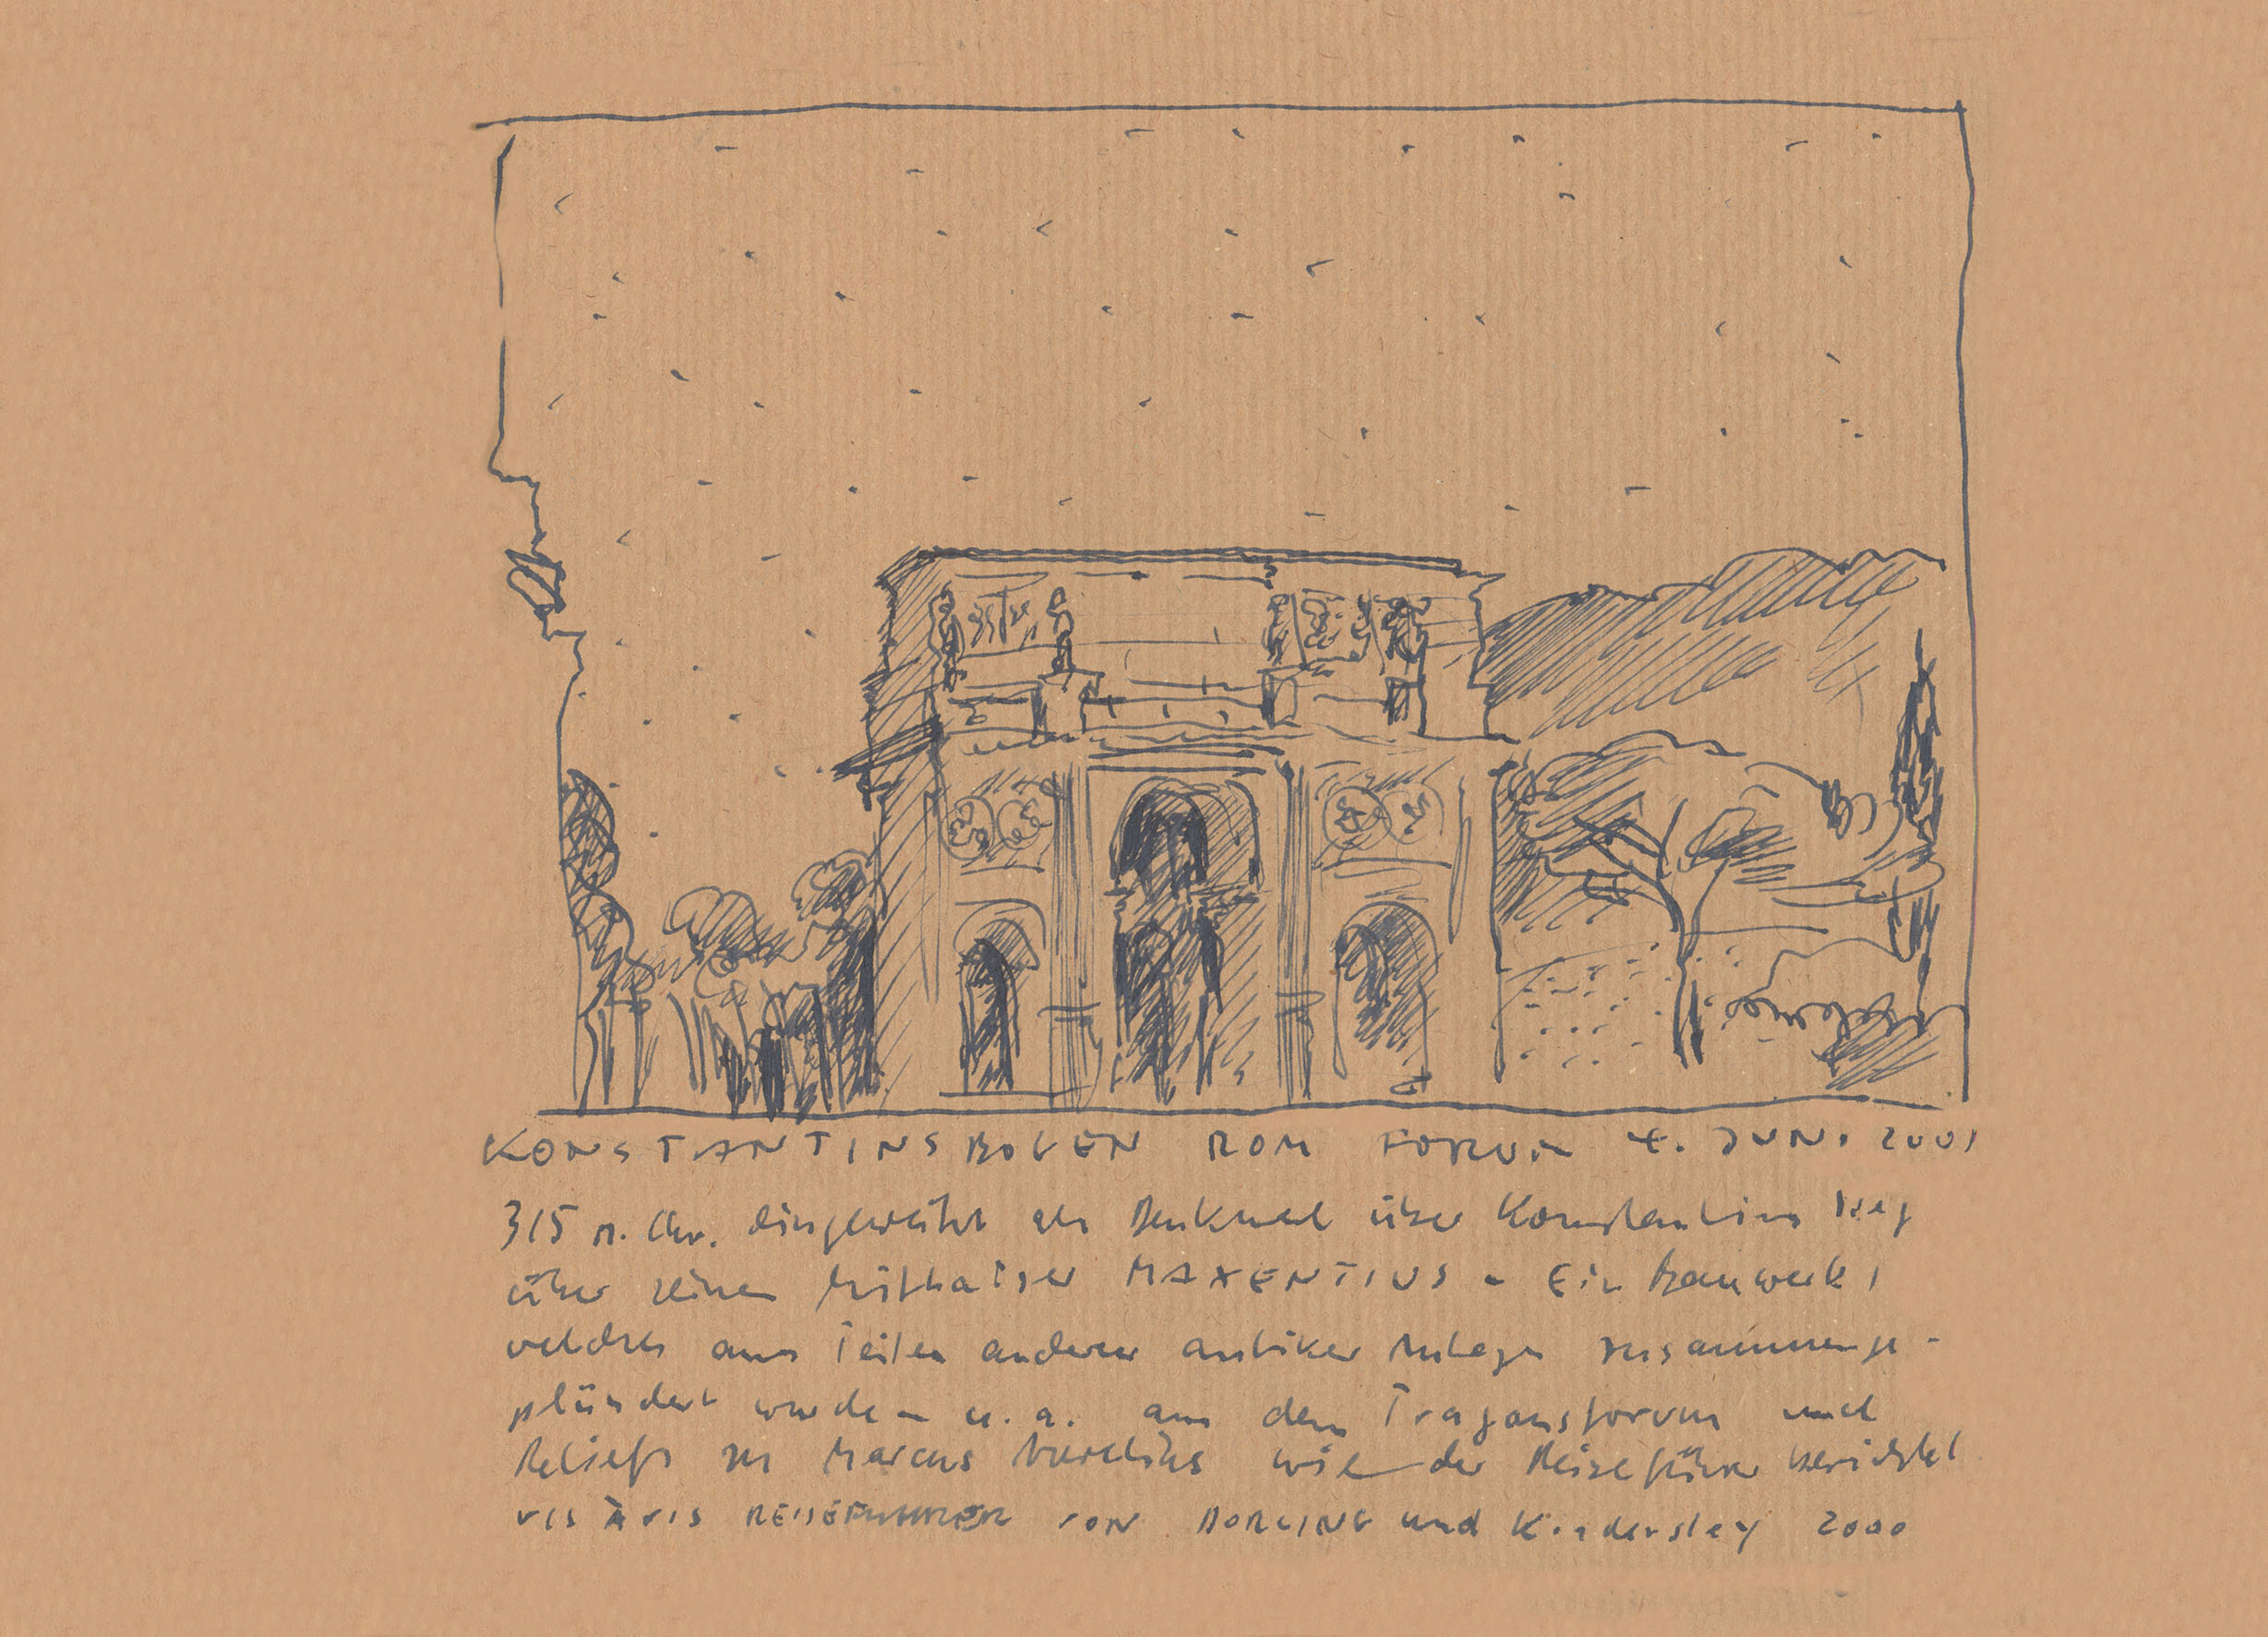 KONSTANTINSBOGEN ROM FORUM 4. JUNI 2001
315 n. Chr. eingeweiht als Denkmal über Konstantins Sieg
über seinen Mitkaiser MAXENTIUS - Ein Bauwerk,
welches aus Teilen anderer antiker Anlagen zusammenge-
plündert wurde - u. a. aus dem Trajansforum und
Reliefs zu Marcus Aurelius wie der Reiseführer berichtet
VIS À VIS REISEFÜHRER VON DORLING und Kindersley 2000